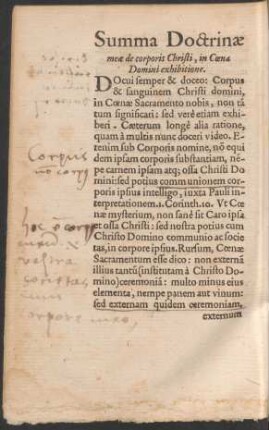 Summa Doctrinæ
meæ de corporis Christi, in Cœna
Domini exhibitione.
DOcui semper & doceo: Corpus
& sanguinem Christi domini,
in Cœnæ Sacramento nobis, non tã
tum significari: sed verè etiam exhi-
beri. Cæterum longè alia ratione,
quam à multis nunc doceri video. E-
tenim sub Corporis nomine, nõ equi
dem ipsam corporis substantiam, nē-
pe carnem ipsam atq; ossa Christi Do
mini: sed potius communionem cor-
poris ipsius intelligo, iuxta Pauli in-
terpretationem. 1. Corinth. 10. Vt Cœ
næ mysterium, non sanè sit Caro ipsa
et ossa Christi: sed nostra potius cum
Christo Domino communio ac socie
tas, in corpore ipsius. Rursum, Cœnæ
Sacramentum esse dico: non externã
illius tantũ (institutam à Christo Do-
mino) ceremoniã: multo minus eius
elementa, nempe panem aut vinum:
sed externam quidem ceremoniam,
externum
Corpus
nõ corp
hoc õ corp
vestra
corpore meo,